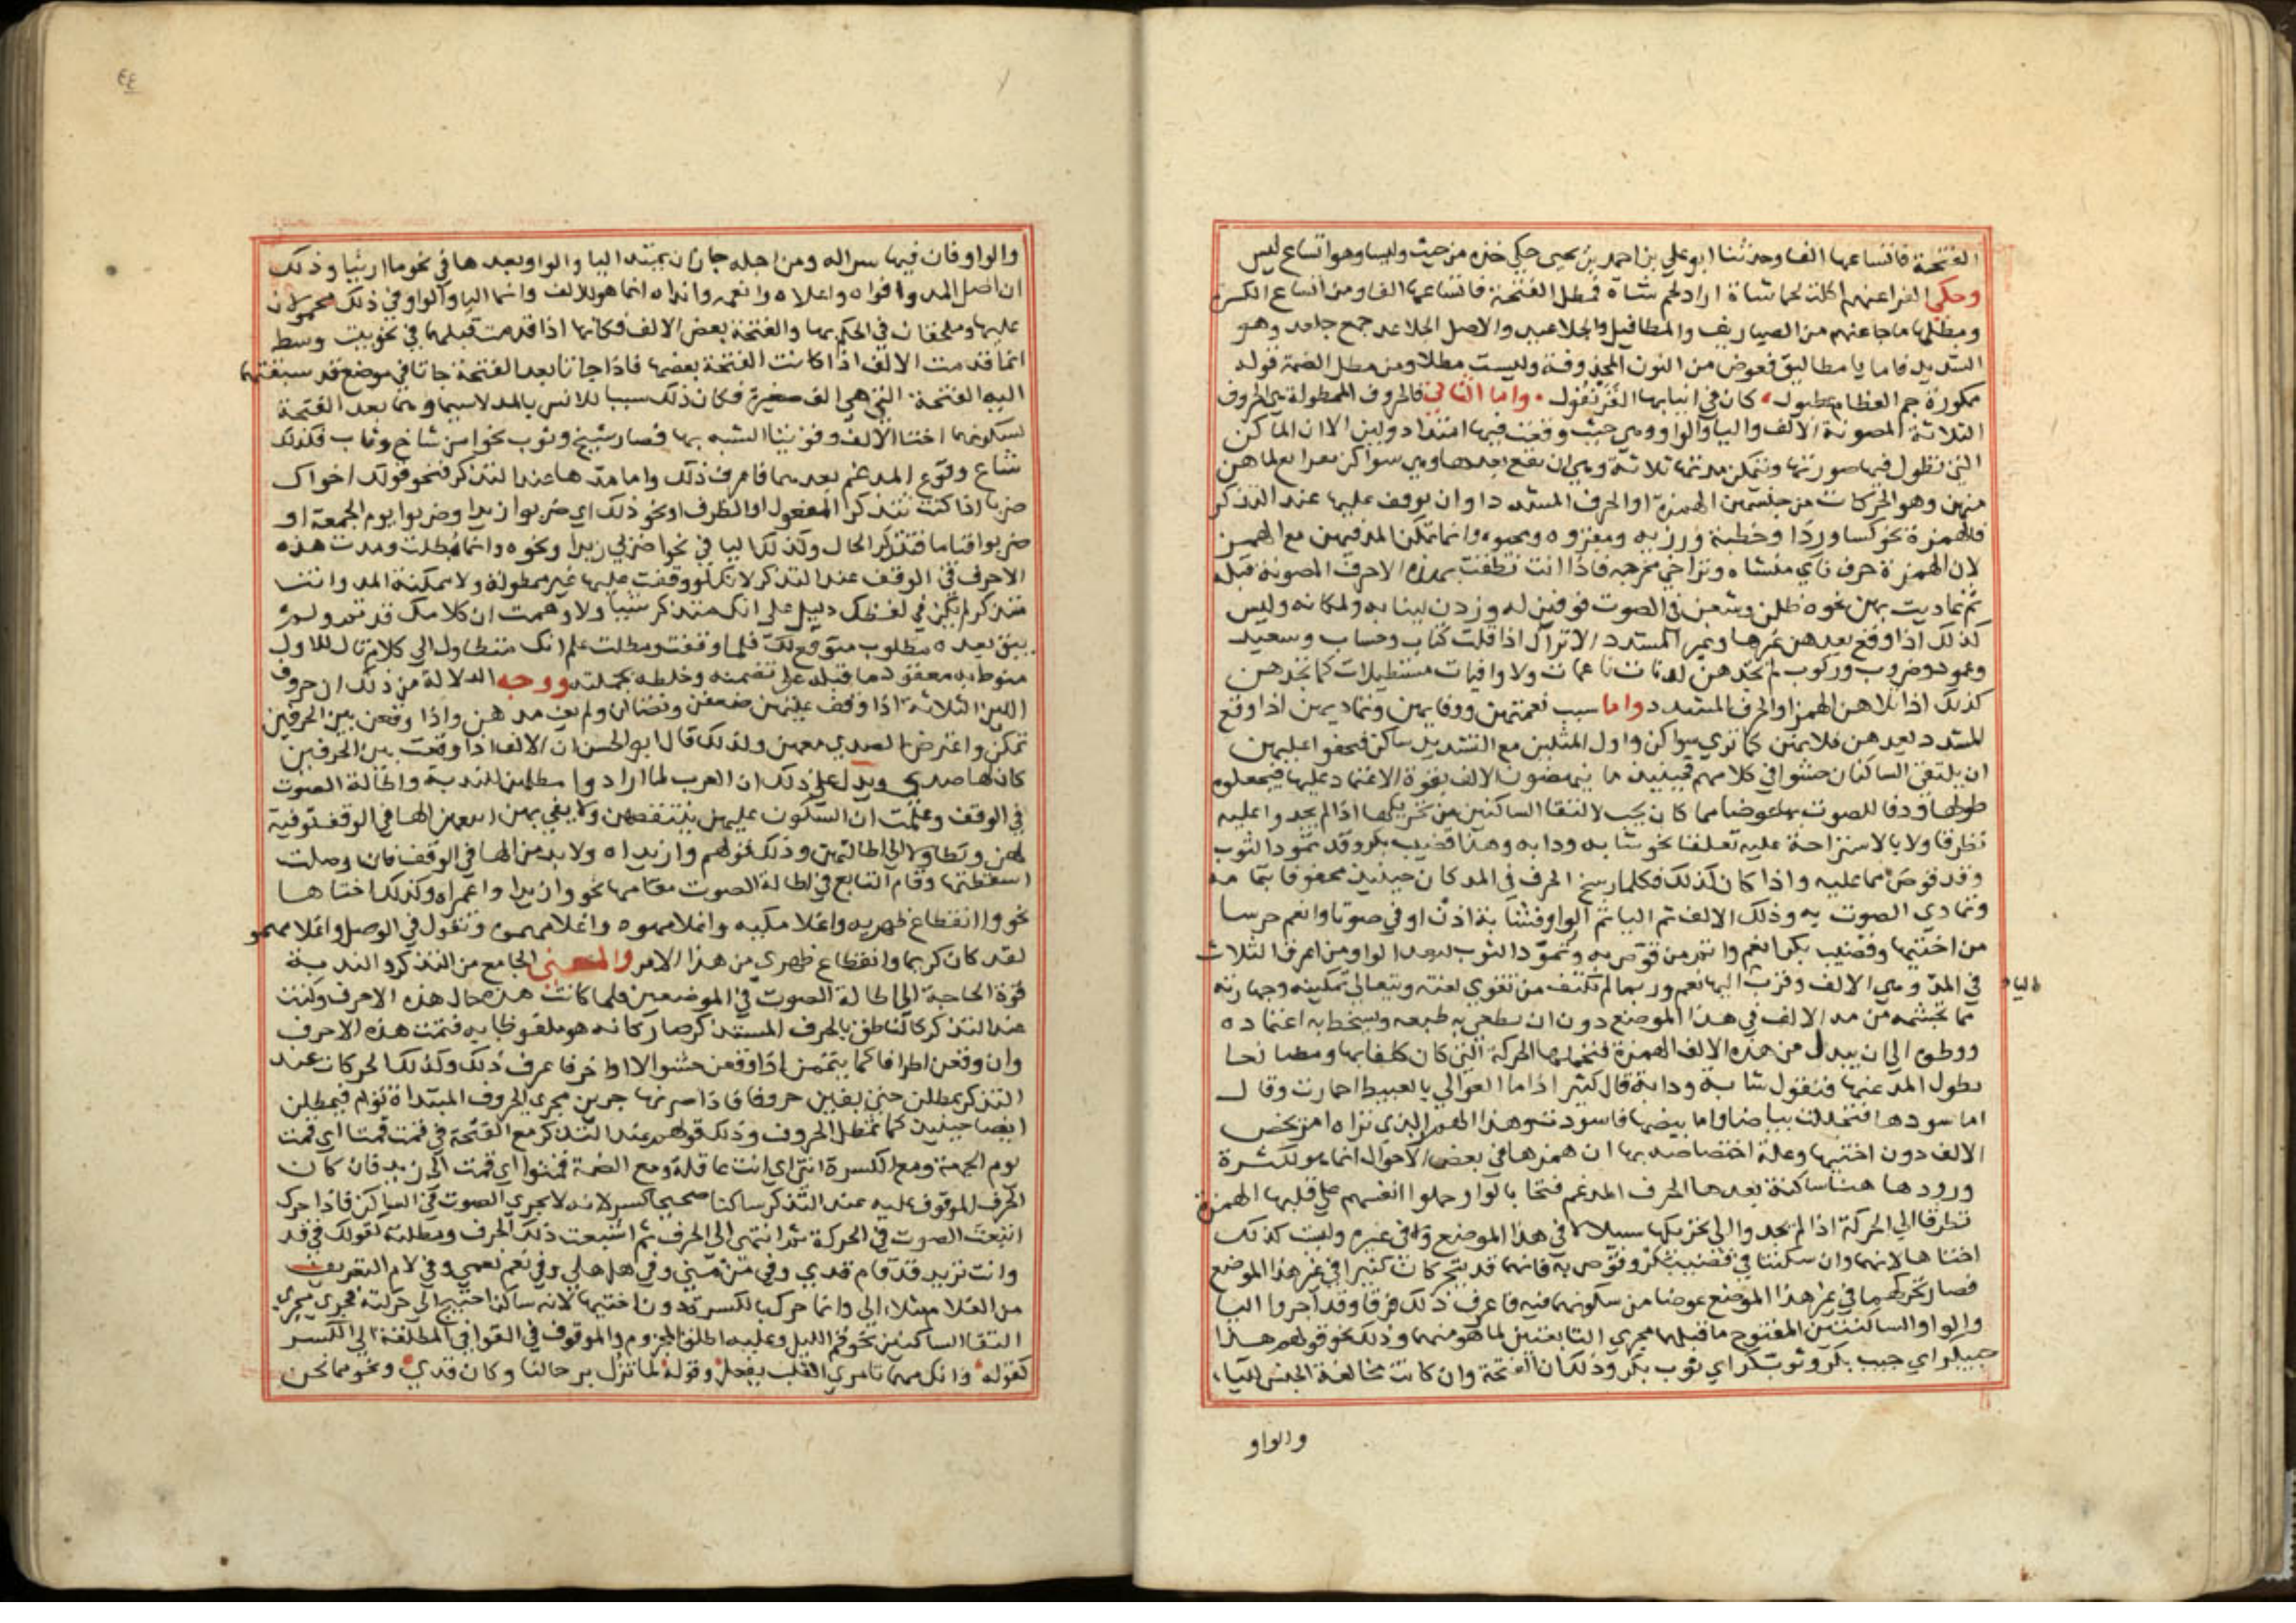 الفتحة فانشا عنها الفا وحدثنا ابو علي بن احمد بن يحيى حكى خذه من حيث وليسا وهو اتساع ليس
وحكى الفرا عنهم اكلت لحما شاة اراد لحم شاة فمطل الفتحة فانشا عنها الفا ومن اشباع الكسرة
ومطلها ما جا عنهم من الصياريف والمطافيل والجلاعيد والاصل الجلاعد جمع جلعد وهو
الشديد فاما يا مطاليق فعوض من النون المحذوفة وليست مطلا ومن مطل الضمة قوله
ممكورة جم العظام عطبول كان في انيابها القرنفول واما الثاني فالحروف الممطولة هي الحروف
الثلاثة المصوتة الالف واليا والواو وهي حيث وقعت فيها امتداد ولين الا ان الماكن
التي تطول فيها صورتها وتتمكن مدتها ثلاثة وهي ان تقع بعدها وهي سواكن توابع لما هن
منهن وهو الحركات من جنسهن الهمزة او الحرف المشدد او ان يوقف عليها عند التذكر
فالهمزة نحو كسا وردا وخطيئة ورزيه ومقروه ومخبوه وانما تمكن المد فيهن مع الهمز
لان الهمزة حرف ناي منشاه وتراخى مخرجه فاذا انت نطقت بهذه الاحرف المصوتة قبله
ثم تماديت بهن نحوه طلن وشعن في الصوت فوفين له وزدن لبيانه ولمكانه وليس
كذلك اذا وقع بعدهن غيرها وغير المشدد الا تراك اذا قلت كتاب وحساب وسعيد
وعمود وضروب وركوب لم تجدهن لدنات ناعمات ولا وافيات مستطيلات كما تجدهن
كذلك اذا تلاهن الهمز او الحرف المشدد واما سبب نعمتهن ووفايهن وتماديهن اذا وقع
المشدد بعدهن فلانهن كما ترى سواكن واول المثلين مع التشديد ساكن فيجفوا عليهن
ان يلتقي الساكنان حشوا في كلامهم فحينئذ ما ينهضون بالالف بقوة الاعتماد عليها فيجعلون
طولها ووفا للصوت بها عوضا مما كان يجب لالتقا الساكنين من تحريكها اذا لم يجدوا عليه
تطرقا ولا بالاستراحة عليه تعلقا نحو شابه ودابه وهذا قضيب بكر وقد تمود الثوب
وقد قوص مما عليه واذا كان كذلك فكلما رسخ الحرف في المد كان حينئذ محفوفا بتمامه
وتمادي الصوت به وذلك الالف ثم اليا ثم الواو فشابة اذن اوفى صوتا وانعم جرسا
من اختيها وقضيب بكر انعم واتم من قوص به وتمود الثوب لبعد الواو من اعرق الثلاث
في المد وهي الالف وقرب اليا اليها نعم وربما لم تكتف من تقوي لغته ويتعالى تمكينه وجهارته
اليا
مما تجشمه من مد الالف في هذا الموضع دون ان يطغى به طبعه ويتخطى به اعتماده
ووطوه الى ان يبدل من هذه الالف الهمزة فيحملها الحركة التي كان كلفا بها ومصانعا
بطول المد عنها فيقول شابة ودابة قال كثير اذا ما العوالي بالعبيط احمارت وقال
اما سودها فتجللت بياضا واما بيضها فاسودت وهذا الهمز الذي تراه امر يخص
الالف دون اختيها وعلة اختصاصه بها ان همزها في بعض الاحوال انما هو لكثرة
ورودها هنا ساكنة بعدها الحرف المدغم فتحا بالوا وحملوا انفسهم على قلبها الهمزة
تطرقا الى الحركة اذا لم يجدوا الى تحريكها سبيلا في هذا الموضع ولا في غيره وليست كذلك
اختاها لانهما وان سكنتا في قضيب بكر وقوص به فانهما قد يتحركان كثيرا في غير هذا الموضع
فصار تحركهما في غير هذا الموضع عوضا من سكونهما فيه فاعرف ذلك فرقا وقد اجروا اليا
والواو الساكنتين المفتوح ما قبلهما مجرى التابعتين لما هو منهما وذلك نحو قولهم هذا
جيبكر اي جيب بكر وثوبكر اي ثوب بكر وذلك ان الفتحة وان كانت مخالفة الجنس لليا
والواو
٤٤
والواو فان فيها سرا له ومن اجله جاز ان تمتد اليا والواو بعدها في نحو ما ارينا وذلك
ان اصل المد وافواه واعلاه وانعمه وانداه انما هو للالف وانما اليا والواو في ذلك محمولان
عليها وملحقان في الحكم بها والفتحة بعض الالف فكانها اذا قدمت قبلهما في نحو بيت وسط
انما قدمت الالف اذا كانت الفتحة بعضها فاذا جاتا بعد الفتحة جاتا في موضع قد سبقتهما
اليه الفتحة التي هي الف صغيرة فكان ذلك سببا للانس بالمد لا سيما وهما بعد الفتحة
لسكونهما اختا الالف وقويتا الشبه بها فصار شيخ وثوب نحوا من شاخ وثاب فلذلك
شاع وقوع المدغم بعدهما فاعرف ذلك واما مدها عند التذكر فنحو قولك اخواك
ضربا اذا كنت تتذكر المفعول او الظرف او نحو ذلك اي ضربوا زيدا وضربوا يوم الجمعة او
ضربوا قياما فتتذكر الحال وكذلك اليا في نحو اضربي زيدا ونحوه وانما مطلت ومدت هذه
الاحرف في الوقف عند التذكر لانك لو وقفت عليها غير ممطولة ولا ممكنة المد وانت
متذكر لم يكن في لفظك دليل على انك متذكر شيا ولا وهمت ان كلامك قد تم ولم
يبق بعده مطلوب متوقع لك فلما وقفت ومطلت علم انك متطاول الى كلام تال للاول
منوط به معقود ما قبله على تضمنه وخلطه بجملته ووجه الدلالة من ذلك ان حروف
اللين الثلاثة اذا وقف عليهن ضعفن وتضالن ولم يف مدهن واذا وقعن بين الحرفين
تمكن واعترض الصدى معهن ولذلك قال ابو الحسن ان الالف اذا وقعت بين الحرفين
كان لها صدى ويدل على ذلك ان العرب لما ارادوا مطلهن للندبة واطالة الصوت
في الوقف وعلمت ان السكون عليهن ينتقصهن ولا يفي بهن اتبعهن الها في الوقف توفية
لهن وتطاولا الى اطالتهن وذلك قولهم وا زيداه ولا بد من الها في الوقف فان وصلت
اسقطتها وقام التابع في اطالة الصوت مقامها نحو وا زيدا واعمراه وكذلك اختاها
نحو وا انقطاع ظهريه واغلامكيه واغلامهوه واغلامهموه وتقول في الوصل واغلامهمو
لقد كان كريما وانقطاع ظهري من هذا الامر والمعنى الجامع من التذكر والندبة
قوة الحاجة الى اطالة الصوت في الموضعين فلما كانت هذه حال هذه الاحرف وكنت
عند التذكر كالناطق بالحرف المستذكر صار كانه هو ملفوظ به فتمت هذه الاحرف
وان وقعن اطرافا كما يتممن اذا وقعن حشوا لا اواخر فاعرف ذلك وكذلك الحركات عند
التذكر يمطلن حتى يفين حروفا فاذا صرنها جرين مجرى الحروف المبتداة توام فيمطلن
ايضا حينئذ كما تمطل الحروف وذلك قولهم عند التذكر مع الفتحة في قمت قمتا اي قمت
يوم الجمعة ومع الكسرة انتي اي انت عاقلة ومع الضمة قمتوا اي قمت الى زيد فان كان
الحرف الموقوف عليه عند التذكر ساكنا صحيحا كسر لانه لا يجري الصوت في الساكن فاذا حرك
انبعث الصوت في الحركة ثم انتهى الى الحرف ثم اشبعت ذلك الحرف ومطلته كقولك في قد
وانت تريد قد قام قدي وفي من مني وفي هل هلي وفي نعم نعمي وفي لام التعريف
من الغلام مثلا الي وانما حرك بالكسرة دون اختيها لانه ساكن احتيج الى حركته فجرى مجرى
التقا الساكنين نحو قم الليل وعليه اطلق المجزوم والموقوف في القوافي المطلقة الى الكسر
كقوله وانك مهما تامري القلب يفعل وقوله لما تزل برحالنا وكان قدي ونحو مما نحن